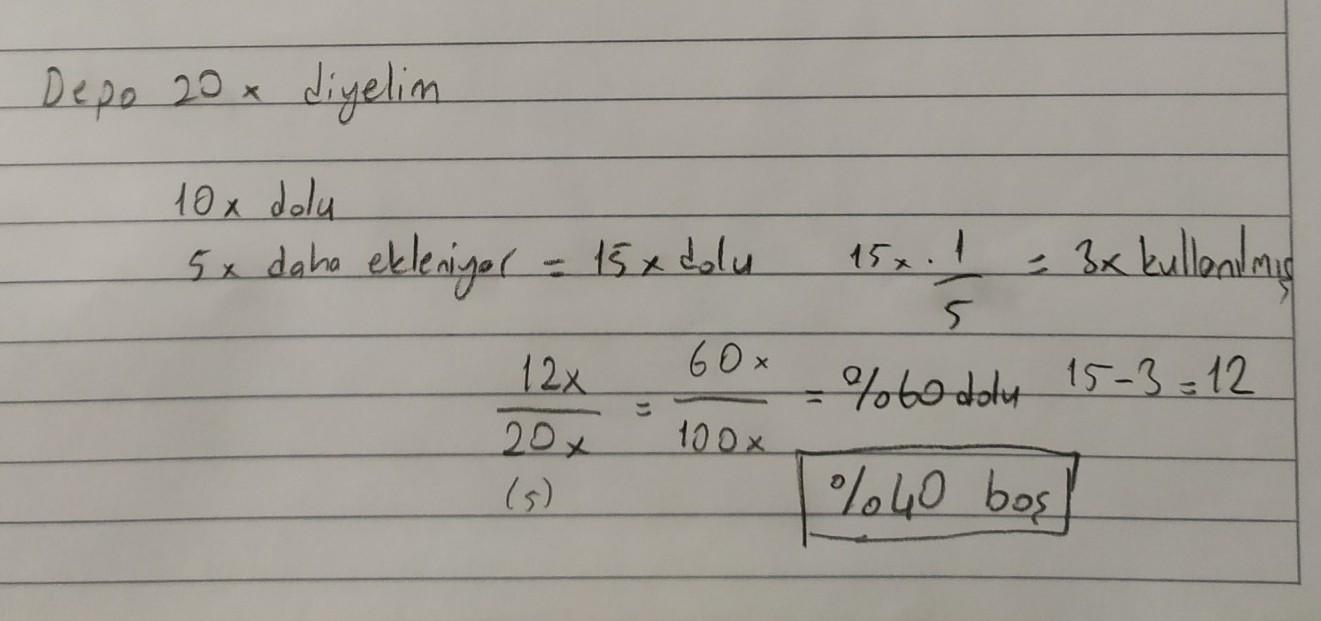 Depo 20x diyelim
10x dolu
5x daha ekleniyor = 15x dolu 15x . 1/5 = 3x kullanılmış
12x/20x = 60x/100x = %60 dolu 15-3=12
(5) %40 boş